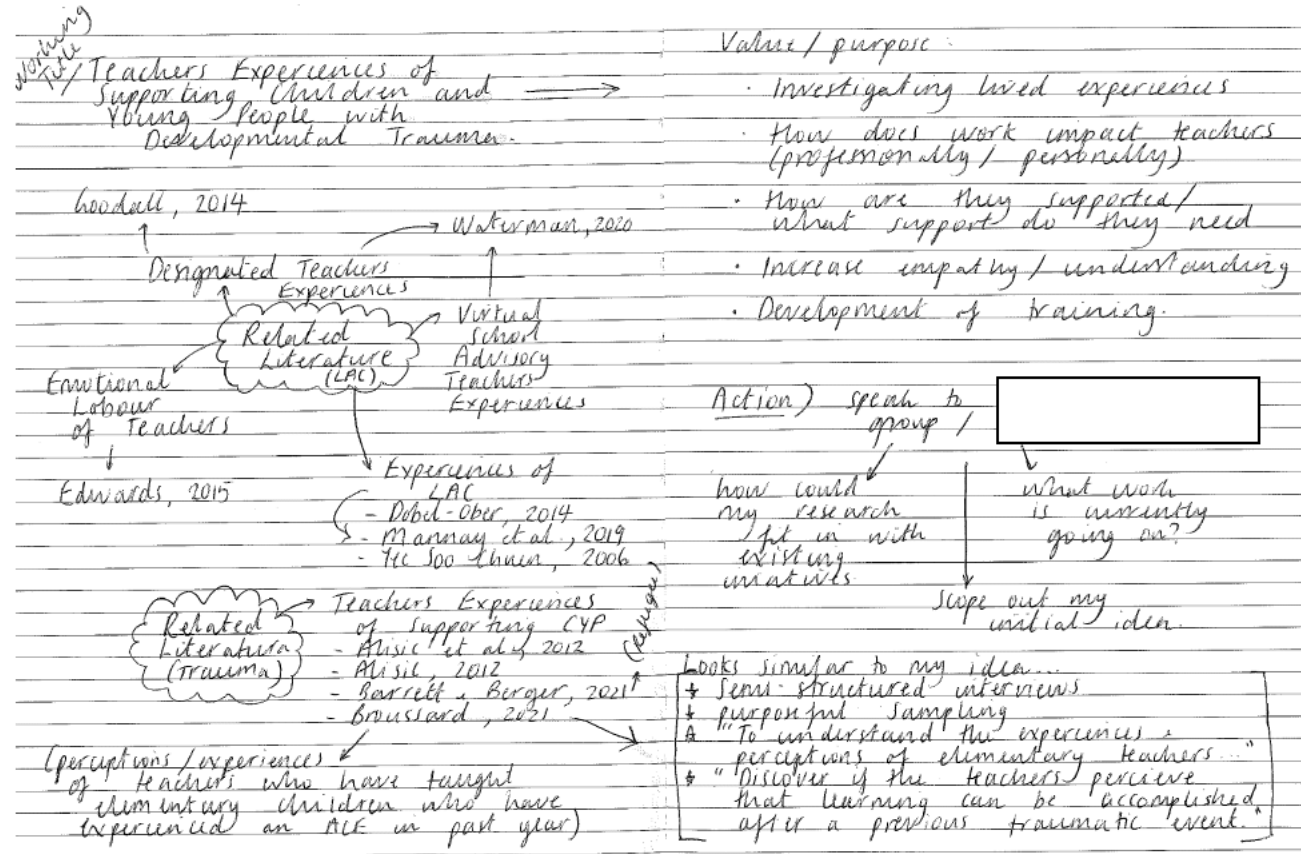 Working
Title /
Teachers Experiences of
Supporting Children and
Young People with
Developmental Trauma.
Goodall, 2014
Waterman, 2020
Designated Teachers
Experiences
Related
Literature
(LAC)
Virtual
School
Advisory
Teachers
Experiences
Emotional
Labour
of Teachers
Edwards, 2015
Experiences of
LAC
- Dobel-Ober, 2014
- Mannay et al., 2019
- 2006
Related
Literature
(Trauma)
Teachers Experiences
of supporting CYP
- Alisic et al, 2012
- Alisic, 2012
- Barrett & Berger, 2021
(Refugee)
- Broussard, 2021
(perceptions / experiences
of teachers who have taught
elementary children who have
experienced an ACE in past year)
Value / purpose:
· Investigating lived experiences
· How does work impact teachers
(professionally / personally)
· How are they supported /
what support do they need
· Increase empathy / understanding
· Development of training.
Action) speak to
group /
how could
my research
fit in with
existing
iniatives
what work
is currently
going on?
Scope out my
initial idea.
Looks similar to my idea...
* Semi-structured interviews
* purposeful sampling
* "To understand the experiences &
perceptions of elementary teachers..."
* "Discover if the teachers percieve
that learning can be accomplished
after a previous traumatic event."